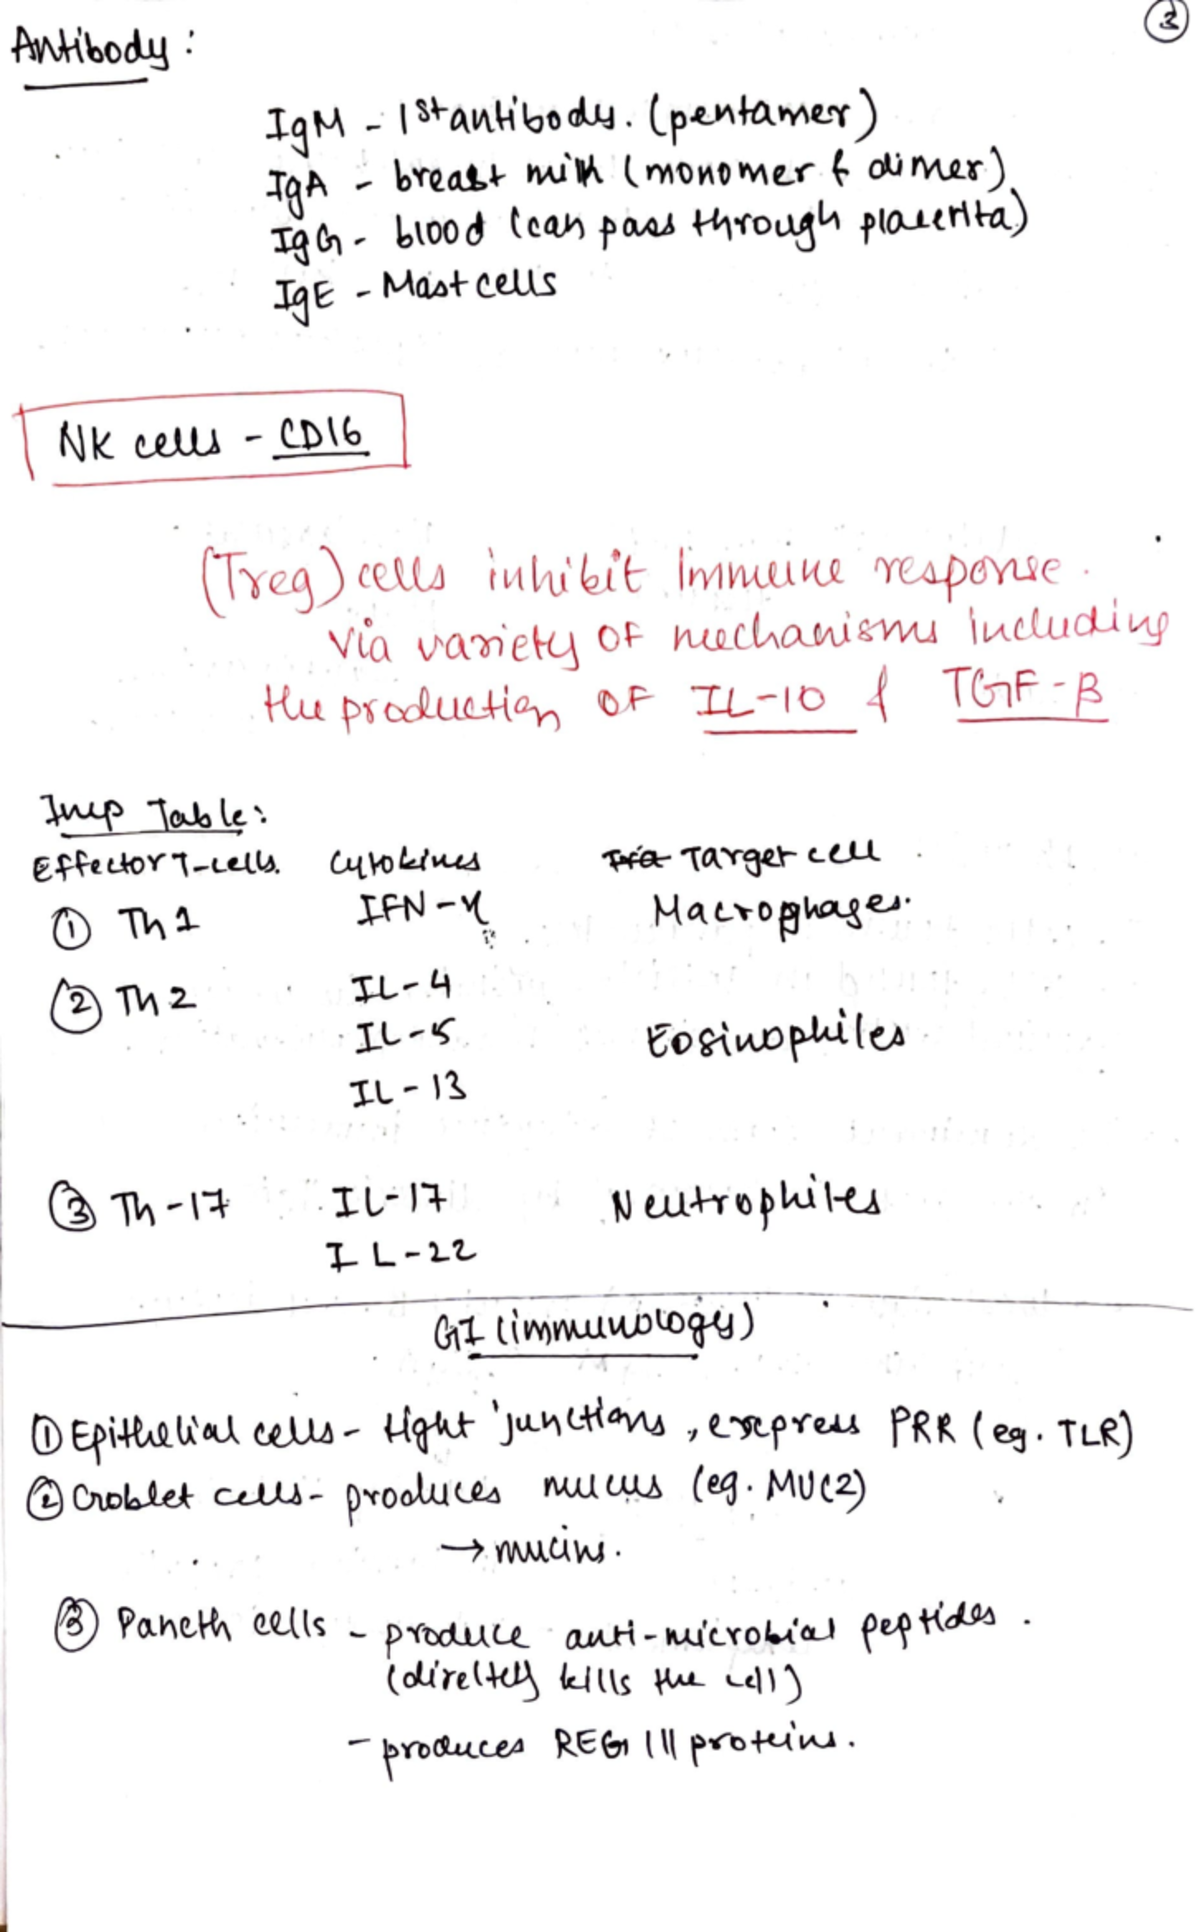 3
Antibody:
IgM - 1st antibody. (pentamer)
IgA - breast milk (monomer & dimer)
IgG - blood (can pass through placenta)
IgE - Mast cells
NK cells - CD16
(Treg) cells inhibit Immune response.
via variety of mechanisms including
the production of IL-10 & TGF-β
Imp Table:
Effector T-cells. Cytokines Target cell
① Th1 IFN-γ Macrophages.
② Th2 IL-4
IL-5 Eosinophiles
IL-13
③ Th-17 IL-17 Neutrophiles
IL-22
GI (immunology)
① Epithelial cells - tight junctions, express PRR (eg. TLR)
② Goblet cells - produces mucus (eg. MUC2)
→ mucins.
③ Paneth cells - produce anti-microbial peptides.
(direltely kills the cell)
- produces REG III proteins.